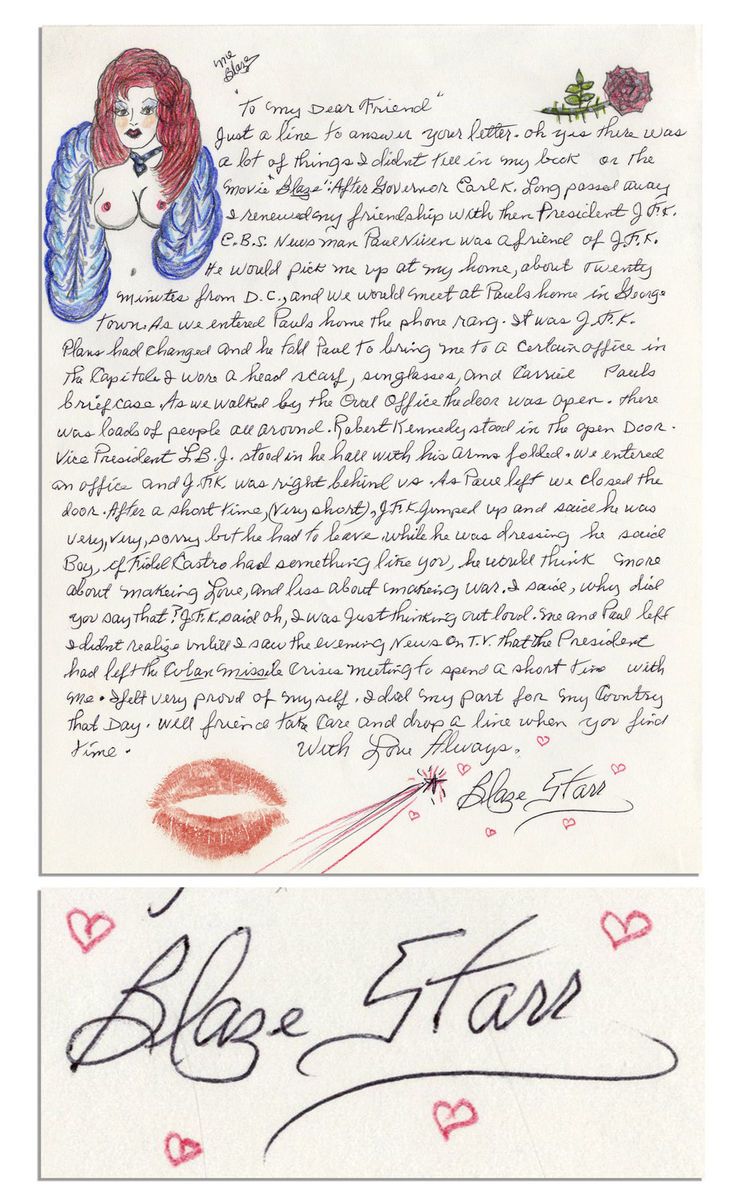 me
Blaze
"To My Dear Friend"
Just a line to answer your letter. oh yes there was
a lot of things I didnt tell in my book or the
movie "Blaze". After Governor Earl K. Long passed away
I renewed my friendship with then President J.F.K.
C.B.S. News man Paul Niven was a friend of J.F.K.
He would pick me up at my home, about Twenty
minutes from D.C., and we would meet at Pauls home in George
Town. As we entered Pauls home the phone rang. It was J.F.K.
Plans had changed and he told Paul to bring me to a certain office in
the Capitol. I wore a head scarf, sunglasses, and Carried Pauls
brief case. As we walked by the Oval Office the door was open. there
was loads of people all around. Robert Kennedy stood in the open Door.
Vice President L.B.J. stood in he hall with his arms folded. we entered
an office and J.F.K was right behind us. As Paul left we closed the
door. After a short time, (very short), J.F.K. Jumped up and said he was
very, very, sorry but he had to leave. while he was dressing he said
Boy, if Fidel Castro had something like you, he would think more
about makeing Love, and less about makeing war. I said, why did
you say that? J.F.K. said oh, I was Just thinking out loud. Me and Paul left
I didnt realize untill I saw the evening News on T.V. that the President
had left the Cuban Missile Crises meeting to spend a short time with
me. I felt very proud of my self. I did my part for my Country
that Day. Well friend take Care and drop a line when you find
time. With Love Always,
Blaze Starr
Blaze Starr